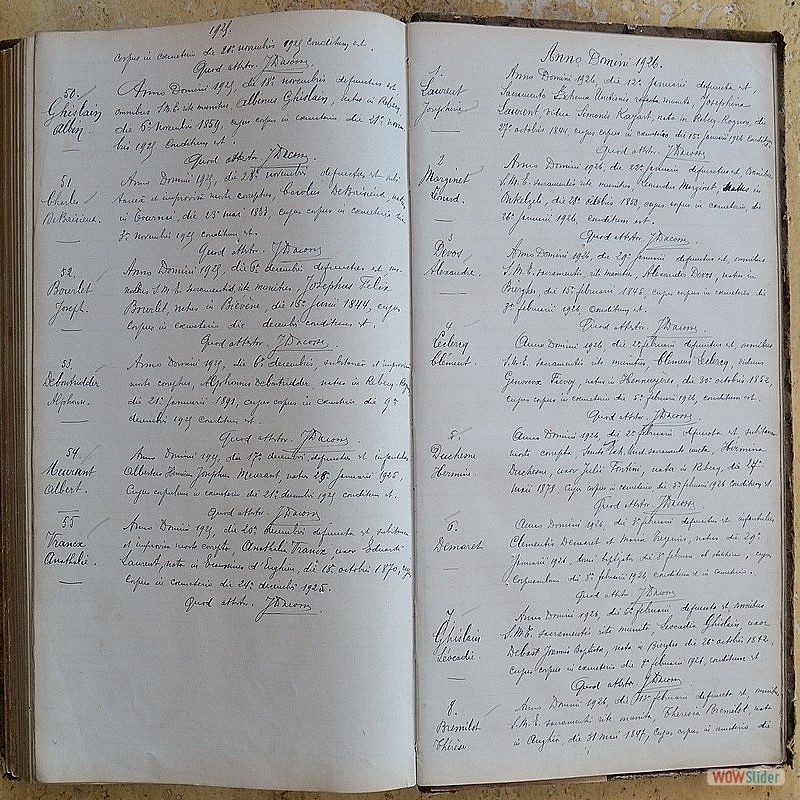 1925.
corpus in cœmeterio die 21ª novembris 1925 conditum est.
Quod attestor. JDacosse
50.
Ghislain
Albin.
Anno Domini 1925, die 18ª novembris defunctus est,
omnibus S.M.E. rite munitus, Albinus Ghislain, natus in Rebecq,
die 6ª novembris 1859, cujus corpus in cœmeterio die 21ª novem
bris 1925 conditum est.
Quod attestor. JDacosse
51
Charles
De Baisieux.
Anno Domini 1925, die 28ª novembris defunctus est subi
tanea et improvisa morte correptus, Carolus De Baisieux, natus
in Tournai, die 23ª mai 1833, cujus corpus in cœmeterio die
novembris 1925 conditum est.
Quod attestor. JDacosse
52.
Bourlet
Joseph.
Anno Domini 1925, die 6ª decembris defunctus est, om
nibus S.M.E. sacramentis rite munitus, Josephus Felix
Bourlet, natus in Biévène, die 15ª junii 1844, cujus
corpus in cœmeterio die decembris conditum est.
Quod attestor. JDacosse
53.
Debontridder
Alphonse.
Anno Domini 1925, die 6ª decembris, subitanea et improvisa
morte correptus, Alphonsus Debontridder, natus in Rebecq Rog
die 21ª januarii 1891, cujus corpus in cœmeterio die 9ª
decembris 1925 conditum est.
Quod attestor. JDacosse
54.
Meurant
Albert.
Anno Domini 1925, die 17ª decembris defunctus est infantulus
Albertus Josephus Meurant, natus 28ª januarii 1925,
cujus corpusculum in cœmeterio die 21ª decembris 1925 conditum est.
Quod attestor. JDacosse
55
Francx
Anathalie.
Anno Domini 1925, die 20ª decembris defuncta est, subitanea
et improvisa morte correpta, Anathalia Francx uxor Eduardi
Laurent, nata in d'Enghien, die 15ª octobris 1870, cujus
corpus in cœmeterio die 24ª decembris 1925.
Quod attestor. JDacosse
Anno Domini 1926.
1.
Laurent
Josephine
Anno Domini 1926, die 12ª januarii defuncta est,
Sacramento Extremæ Unctionis refecta munita, Josephina
Laurent, vidua Simonis Rayart, nata in Rebecq Rognon, die
27ª octobris 1841, cujus corpus in cœmeterio die 15ª januarii 1926 conditum
Quod attestor. JDacosse
2
Marginet
Léonard.
Anno Domini 1926, die 22ª januarii defunctus est, omnibus
S.M.E. sacramentis rite munitus, Leonardus Marginet, natus in
die 28ª octobris 1850, cujus corpus in cœmeterio, die
26ª januarii 1926, conditum est.
Quod attestor. JDacosse
3
Devos
Alexandre.
Anno Domini 1926, die 29ª januarii defunctus est, omnibus
S.M.E. sacramentis, rite munitus, Alexander Devos, natus in
Bierghes, die 15ª februarii 1845, cujus corpus in cœmeterio die
februarii 1926, conditum est.
Quod attestor. JDacosse
4
Leclercq
Clément.
Anno Domini 1926, die 2ª februarii defunctus est, omnibus
S.M.E. sacramentis rite munitus Clemens Leclercq, viduus
Genovevæ Fievez, natus in Hennuyeres, die 30ª octobris 1852
cujus corpus in cœmeterio die 5ª februarii 1926, conditum est.
Quod attestor. JDacosse
5.
Duchesne
Hermine.
Anno Domini 1926, die 2ª februarii defuncta est subitanea
morte correpta, sacramento uncta, Hermina
Duchesne, uxor Julii Fontini, nata in Rebecq, die 24ª
mai 1878, cujus corpus in cœmeterio, die 5ª februarii 1926 conditum est.
Quod attestor JDacosse
6.
Demaret
Anno Domini 1926, die februarii defunctus est infantulus
Clementis Demaret et Maria natus die 29ª
januarii 1926, domi baptizatus die februarii et cujus
corpusculum die 8ª februarii 1926 conditum est in cœmeterio.
Quod attestor JDacosse
7
Ghislain
Léocadie.
Anno Domini 1926, die 5ª februarii defuncta est, omnibus
S.M.E. sacramentis rite munita, Leocadia Ghislain, uxor
Debast Joannis Baptista, nata in Bierghes die 26ª octobris 1842,
cujus corpus in cœmeterio die 8ª februarii 1926, conditum est.
Quod attestor JDacosse
8
Bremilst
Thérèse
Anno Domini 1926, die 15ª februarii defuncta est, omnibus
S.M.E. sacramentis rite munita, Theresia Bremelst, nata
in Anghiæ, die 31 maii 1847, cujus corpus in cœmeterio die
WOWSlider